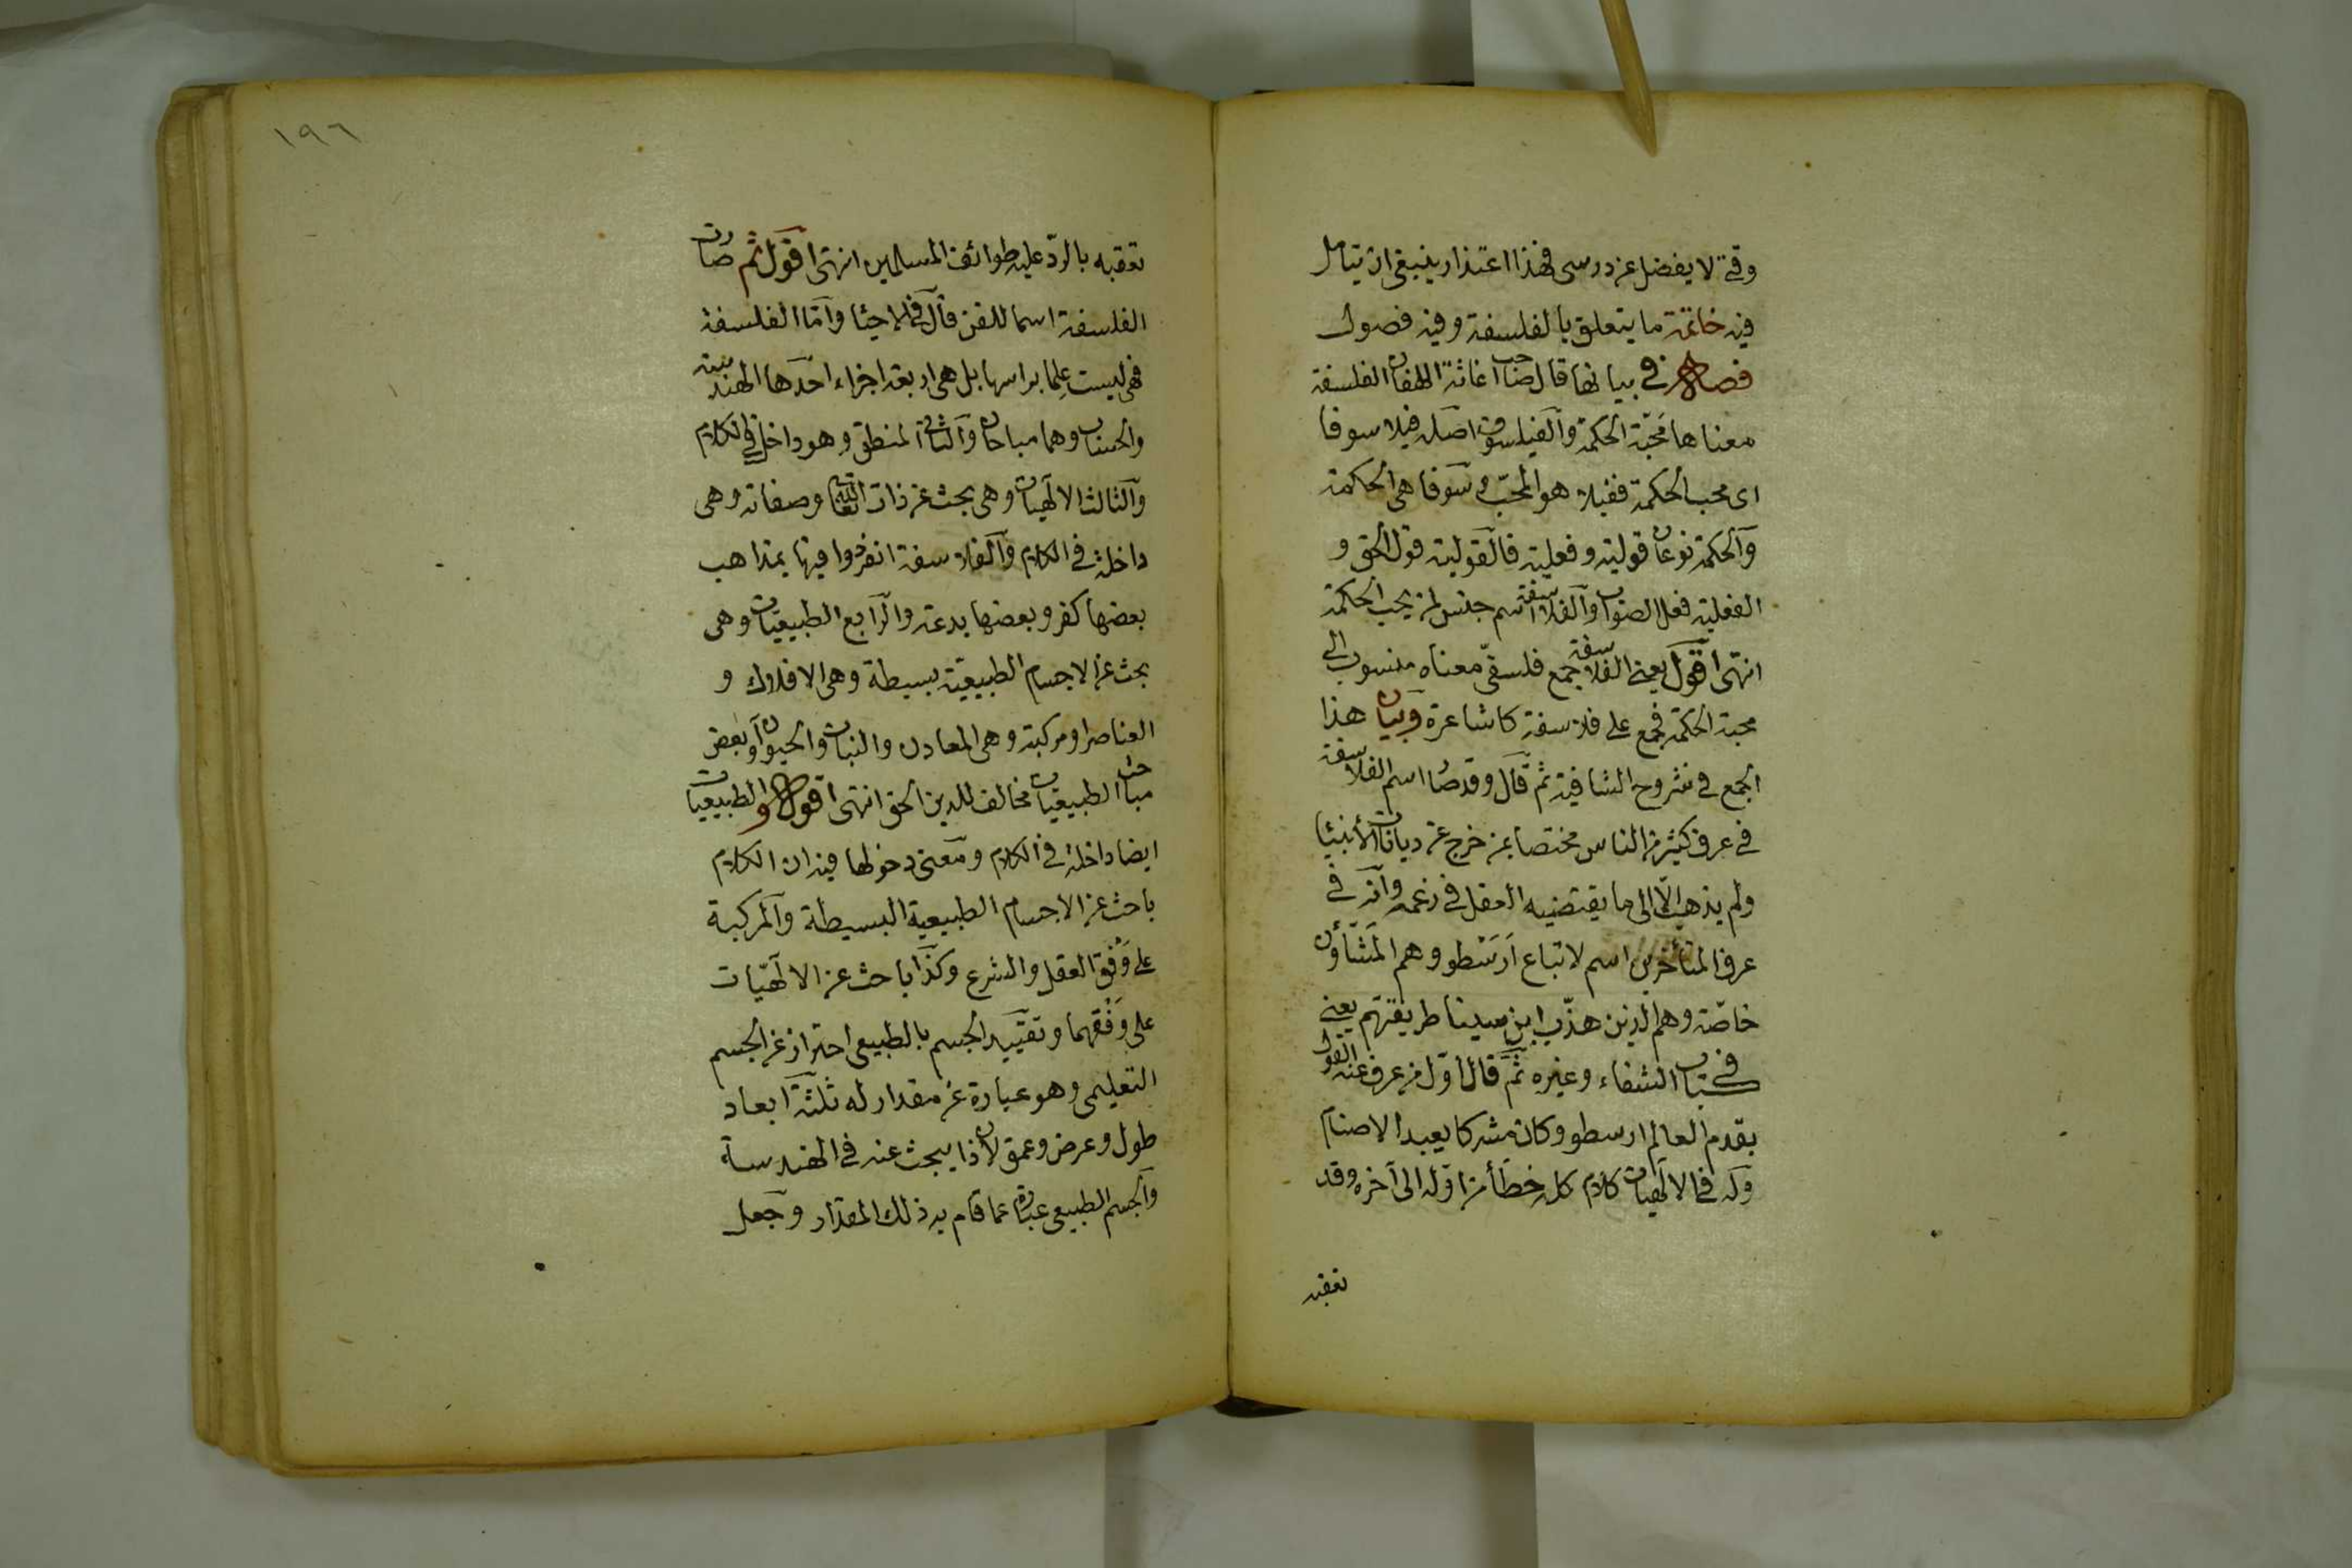 وقتى لا يفضل عن درسى فهذا اعتذار ينبغى ان يتامل
فيه خاتمة ما يتعلق بالفلسفة وفيه فصول
فصل فى بيانها قال صاحب اغاثة اللهفان الفلسفة
معناها محبّة الحكمة والفيلسوف اصله فيلا سوفا
اى محب الحكمة ففيلا هو المحبّ وسوفا هى الحكمة
والحكمة نوعان قولية وفعلية فالقولية قول الحق و
الفعلية فعل الصواب والفلاسفة اسم جنس لمن يحب الحكمة
انتهى اقول يعنى الفلاسفة جمع فلسفىّ معناه منسوب الى
محبة الحكمة فجمع على فلاسفة كاشاعرة وبيان هذا
الجمع فى شروح الشافية ثم قال وقد صار اسم الفلاسفة
فى عرف كثير من الناس مختصا بمن خرج عن ديانات الأنبيا
ولم يذهب الّا الى ما يقتضيه العقل فى زعمه وانه فى
عرف المتأخرين اسم لاتباع اَرَسْطو وهم المَشّأون
خاصّة وهم الذين هذّب ابن سينا طريقتهم يعنى
فى كتاب الشفاء وغيره ثم قال اوّل من عرف عنه القول
بقدم العالم ارسطو وكان مشركا يعبد الاصنام
وله فى الالهيات كلام كله خطأ من اوّله الى آخره وقد
تعقبه
١٩٦
تعقبه بالردّ عليه طوائف المسلمين انتهى اقول ثم صارت
الفلسفة اسما للفن قال فى الاحيا وامّا الفلسفة
فهى ليست عِلما براسها بل هى اربعة اجزاء احدها الهندسة
والحساب وهما مباحان والثانى المنطق وهو داخل فى الكلام
والثالث الالهيات وهى بحث عن ذات الله تعالى وصفاته وهى
داخلة فى الكلام والفلاسفة انفردوا فيها بمذاهب
بعضها كفر وبعضها بدعة والرّابع الطبيعيات وهى
بحث عن الاجسام الطبيعيّة بسيطة وهى الافلاك و
العناصر او مركبة وهى المعادن والنبات والحيوان وبعض
مباحث الطبيعيات مخالف للدين الحق انتهى اقول والطبيعيات
ايضا داخلة فى الكلام ومعنى دخولها فيه ان الكلام
باحث عن الاجسام الطبيعية البسيطة والمركبة
على وَفق العقل والشرع وكذا باحث عن الالهيّات
على وَفْقهما وتقييد الجسم بالطبيعى احتراز عن الجسم
التعليمى وهو عبارة عن مقدار له ثلثة ابعاد
طول وعرض وعمق لان ذا يبحث عنه فى الهندسة
والجسم الطبيعى عبارة عما قام به ذلك المقدار وجعل